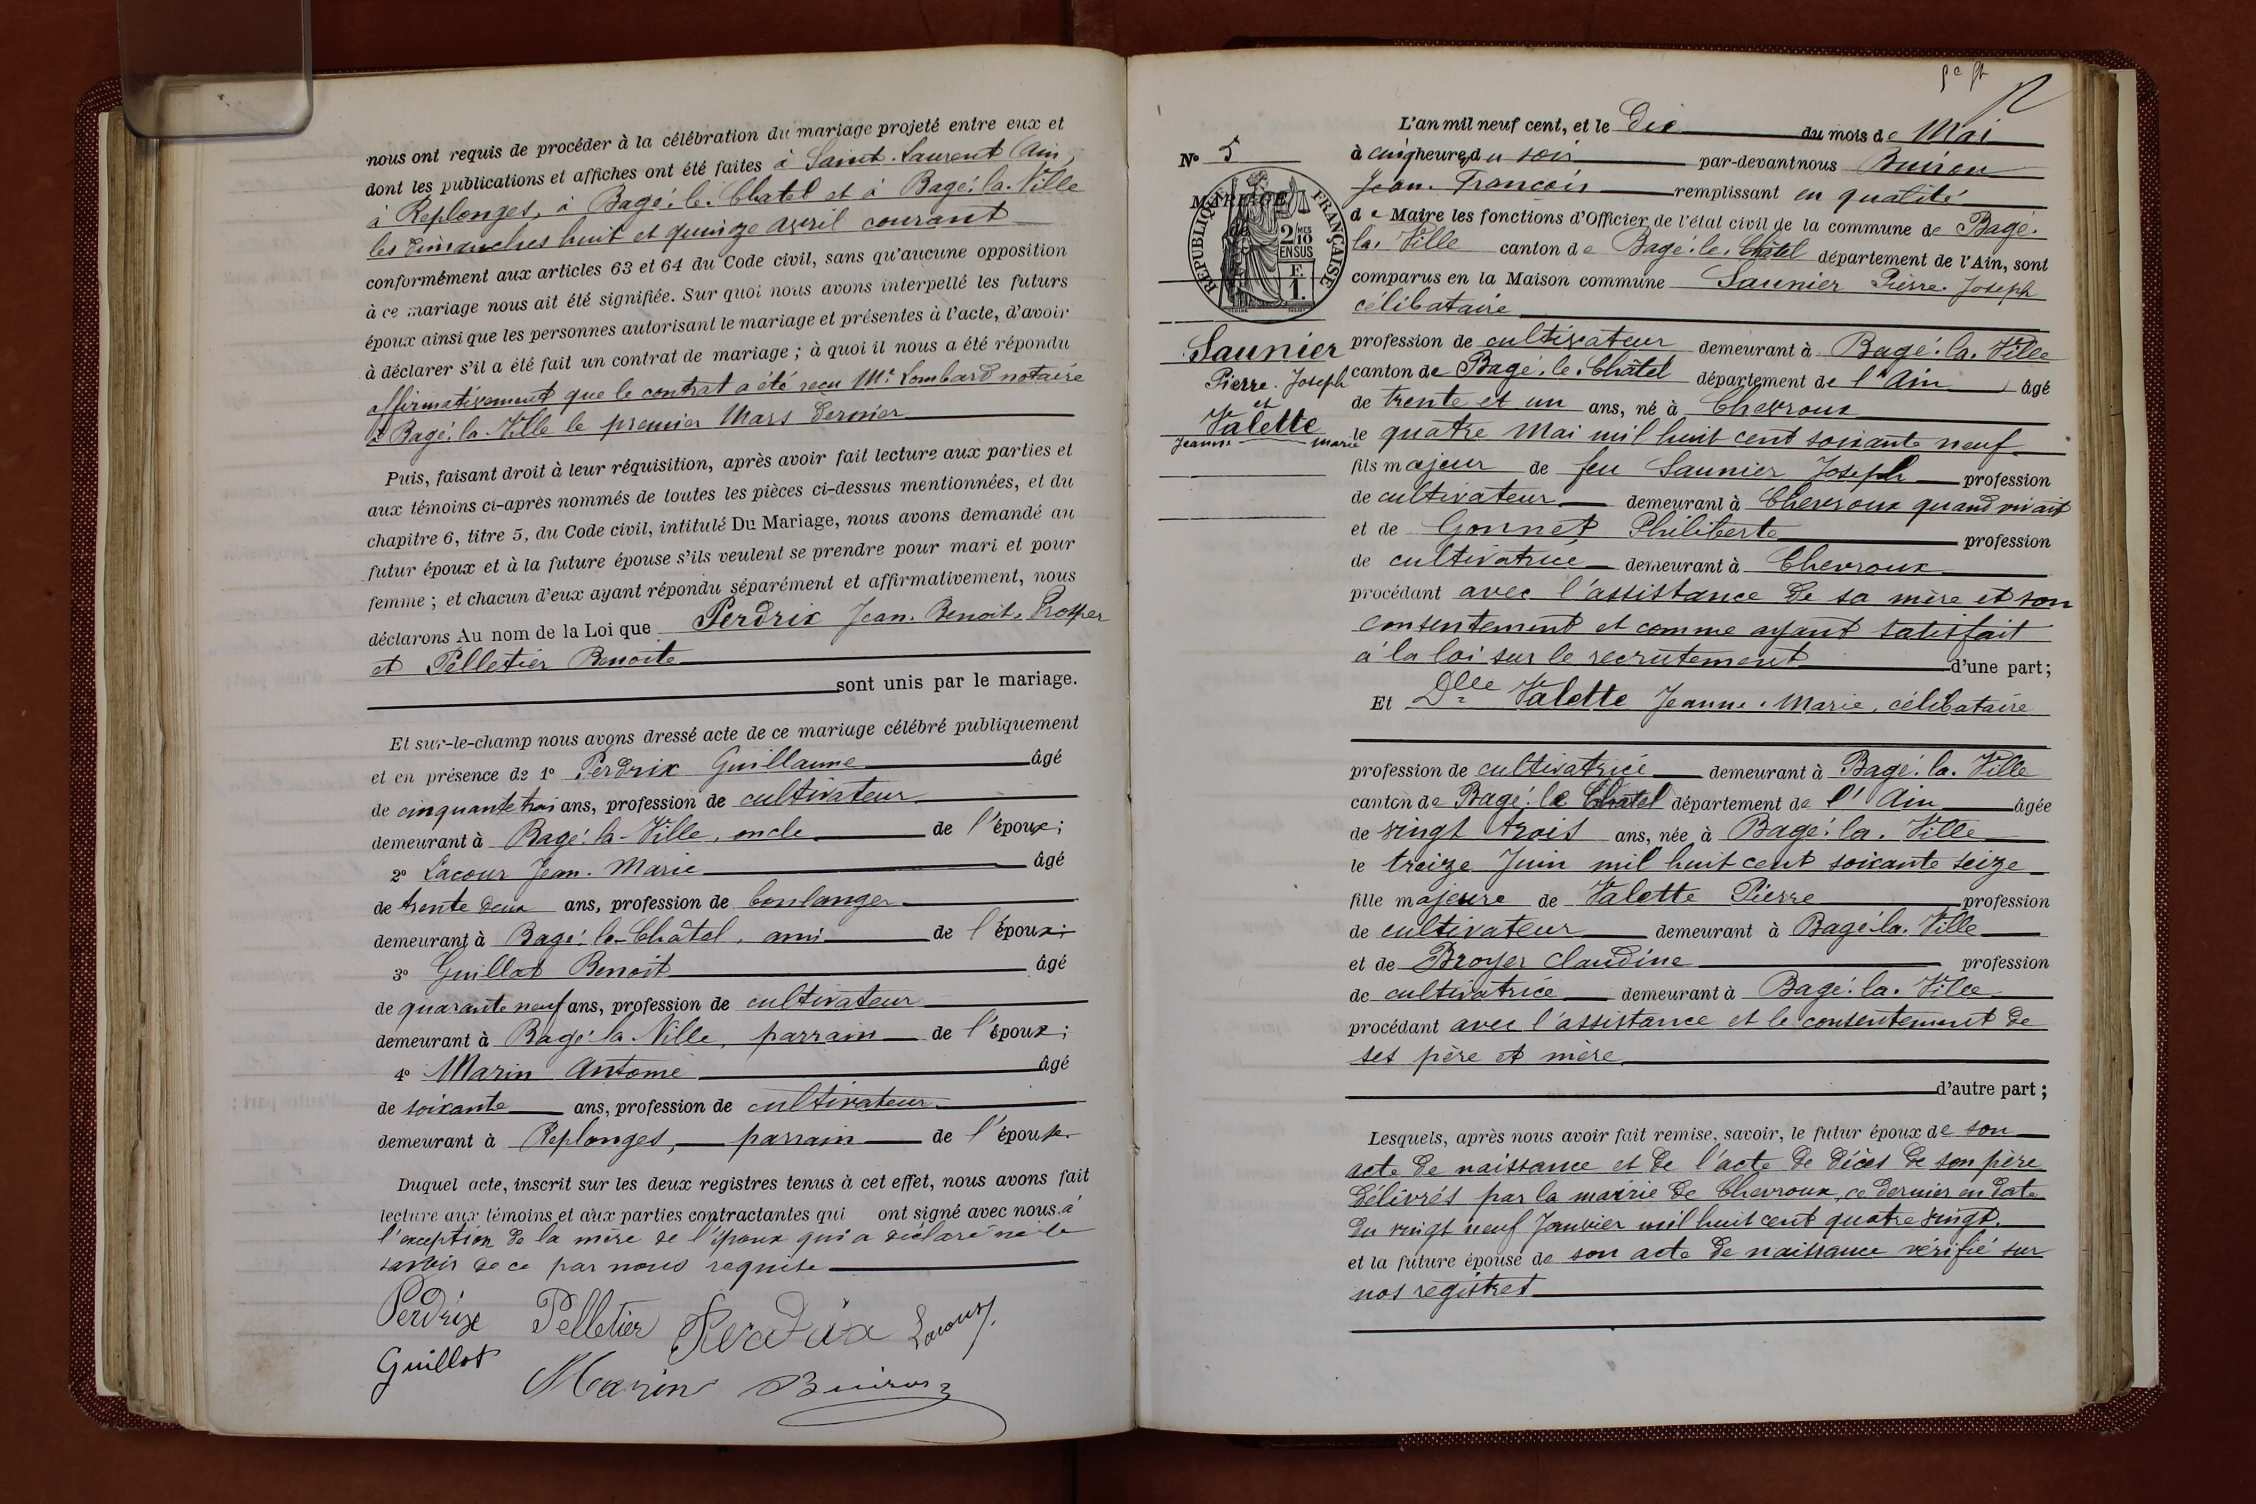 nous ont requis de procéder à la célébration du mariage projeté entre eux et
dont les publications et affiches ont été faites à Saint-Laurent (Ain,
à Replonges, à Bagé-le-Châtel et à Bagé-la-Ville
les dimanches huit et quinze avril courant
conformément aux articles 63 et 64 du Code civil, sans qu'aucune opposition
à ce mariage nous ait été signifiée. Sur quoi nous avons interpellé les futurs
époux ainsi que les personnes autorisant le mariage et présentes à l'acte, d'avoir
à déclarer s'il a été fait un contrat de mariage ; à quoi il nous a été répondu
affirmativement que le contrat a été reçu Me Lombard notaire
à Bagé-la-Ville le premier Mars dernier
Puis, faisant droit à leur réquisition, après avoir fait lecture aux parties et
aux témoins ci-après nommés de toutes les pièces ci-dessus mentionnées, et du
chapitre 6, titre 5, du Code civil, intitulé Du Mariage, nous avons demandé au
futur époux et à la future épouse s'ils veulent se prendre pour mari et pour
femme ; et chacun d'eux ayant répondu séparément et affirmativement, nous
déclarons Au nom de la Loi que Perdrix Jean-Benoit-Prosper
et Pelletier Benoite
sont unis par le mariage.
Et sur-le-champ nous avons dressé acte de ce mariage célébré publiquement
et en présence de 1° Perdrix Guillaume âgé
de cinquante trois ans, profession de cultivateur
demeurant à Bagé-la-Ville, oncle de l'époux;
2° Lacour Jean-Marie âgé
de trente deux ans, profession de boulanger
demeurant à Bagé-le-Châtel, ami de l'époux;
3° Guillot Benoit âgé
de quarante neuf ans, profession de cultivateur
demeurant à Bagé-la-Ville, parrain de l'époux;
4° Marin Antoine âgé
de soixante ans, profession de cultivateur
demeurant à Replonges, parrain de l'épouse.
Duquel acte, inscrit sur les deux registres tenus à cet effet, nous avons fait
lecture aux témoins et aux parties contractantes qui ont signé avec nous à
l'exception de la mère de l'époux qui a déclaré ne le
savoir de ce par nous requise
Perdrix Pelletier Perdrix Lacour
Guillot Marin Buiron
N° 5
MARIAGE
de
RÉPUBLIQUE FRANÇAISE
2/10 MES
EN SUS
F.
1.
Saunier
Pierre-Joseph
et
Valette
Jeanne-Marie
L'an mil neuf cent, et le dix du mois de Mai
à cinq heures du soir par-devant nous Buiron
Jean-François remplissant en qualité
de Maire les fonctions d'Officier de l'état civil de la commune de Bagé-
la-Ville canton de Bagé-le-Châtel département de l'Ain, sont
comparus en la Maison commune Saunier Pierre-Joseph
célibataire
profession de cultivateur demeurant à Bagé-la-Ville
canton de Bagé-le-Châtel département de l'Ain âgé
de trente et un ans, né à Chevroux
le quatre Mai mil huit cent soixante neuf
fils majeur de feu Saunier Joseph profession
de cultivateur demeurant à Chevroux quand vivait
et de Gonnet Philiberte profession
de cultivatrice demeurant à Chevroux
procédant avec l'assistance de sa mère et son
consentement et comme ayant satisfait
à la loi sur le recrutement d'une part;
Et Dlle Valette Jeanne-Marie, célibataire
profession de cultivatrice demeurant à Bagé-la-Ville
canton de Bagé-le-Châtel département de l'Ain âgée
de vingt trois ans, née à Bagé-la-Ville
le treize Juin mil huit cent soixante seize
fille majeure de Valette Pierre profession
de cultivateur demeurant à Bagé-la-Ville
et de Broyer Claudine profession
de cultivatrice demeurant à Bagé-la-Ville
procédant avec l'assistance et le consentement de
ses père et mère
d'autre part ;
Lesquels, après nous avoir fait remise, savoir, le futur époux de son
acte de naissance et de l'acte de décès de son père
délivrés par la mairie de Chevroux, ce dernier en date
du vingt neuf Janvier mil huit cent quatre vingt.
et la future épouse de son acte de naissance vérifié sur
nos registres